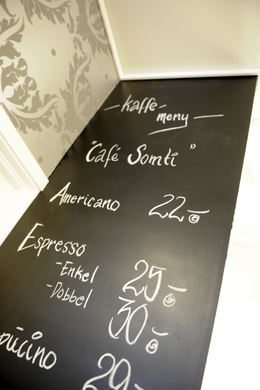 - kaffe-
meny -
"Café Somti"
Americano 22,-
Espresso
- Enkel 25,-
- Dobbel 30,-
29,-